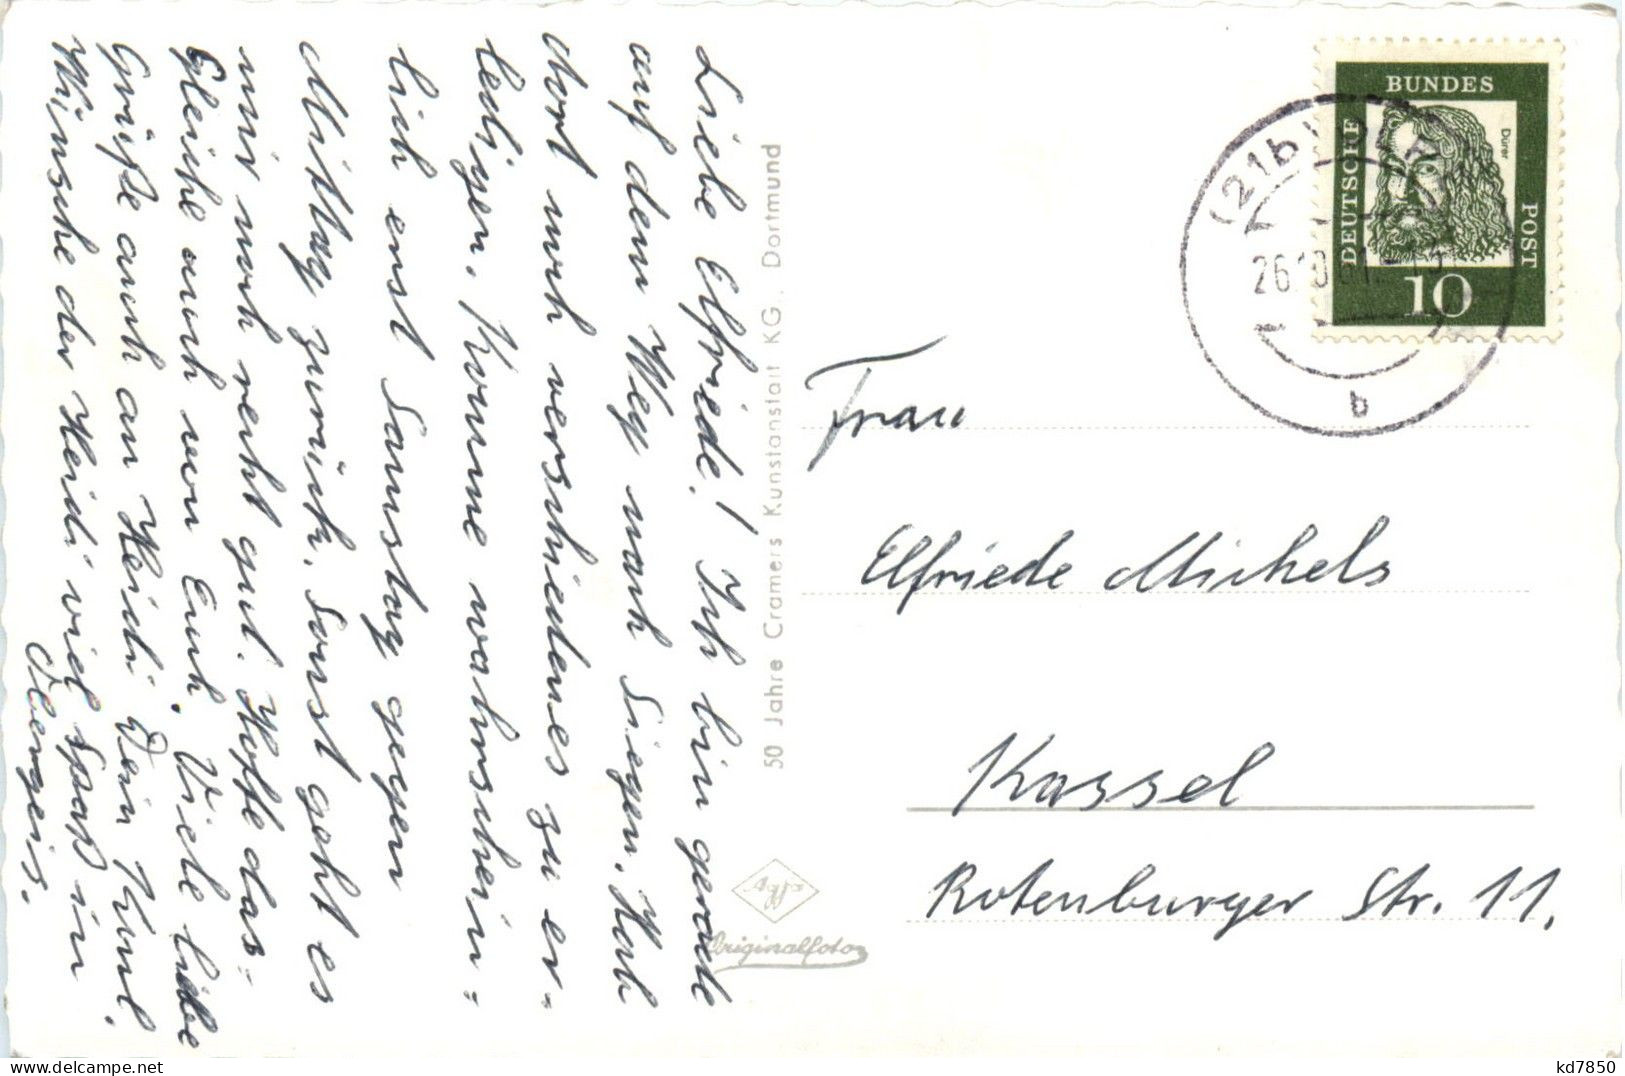 Liebe Elfriede! Ich bin gerade
auf dem Weg nach Siegen. Hab
dort noch verschiedenes zu er-
ledigen. Komme wahrschein-
lich erst Samstag gegen
Mittag zurück. Sonst geht es
mir noch recht gut. Hoffe das-
Gleiche auch von Euch. Viele liebe
Grüße auch an Heidi Dein Kurt.
Wünsche der Heidi viel Spaß in
50 Jahre Cramers Kunstanstalt KG., Dortmund
Agfa
Originalfoto
DEUTSCHE
BUNDES
POST
Dürer
10
(21b)
26.10.61
b
Frau
Elfriede Michels
Kassel
Rotenburger Str. 11.
delcampe.net
kd7850